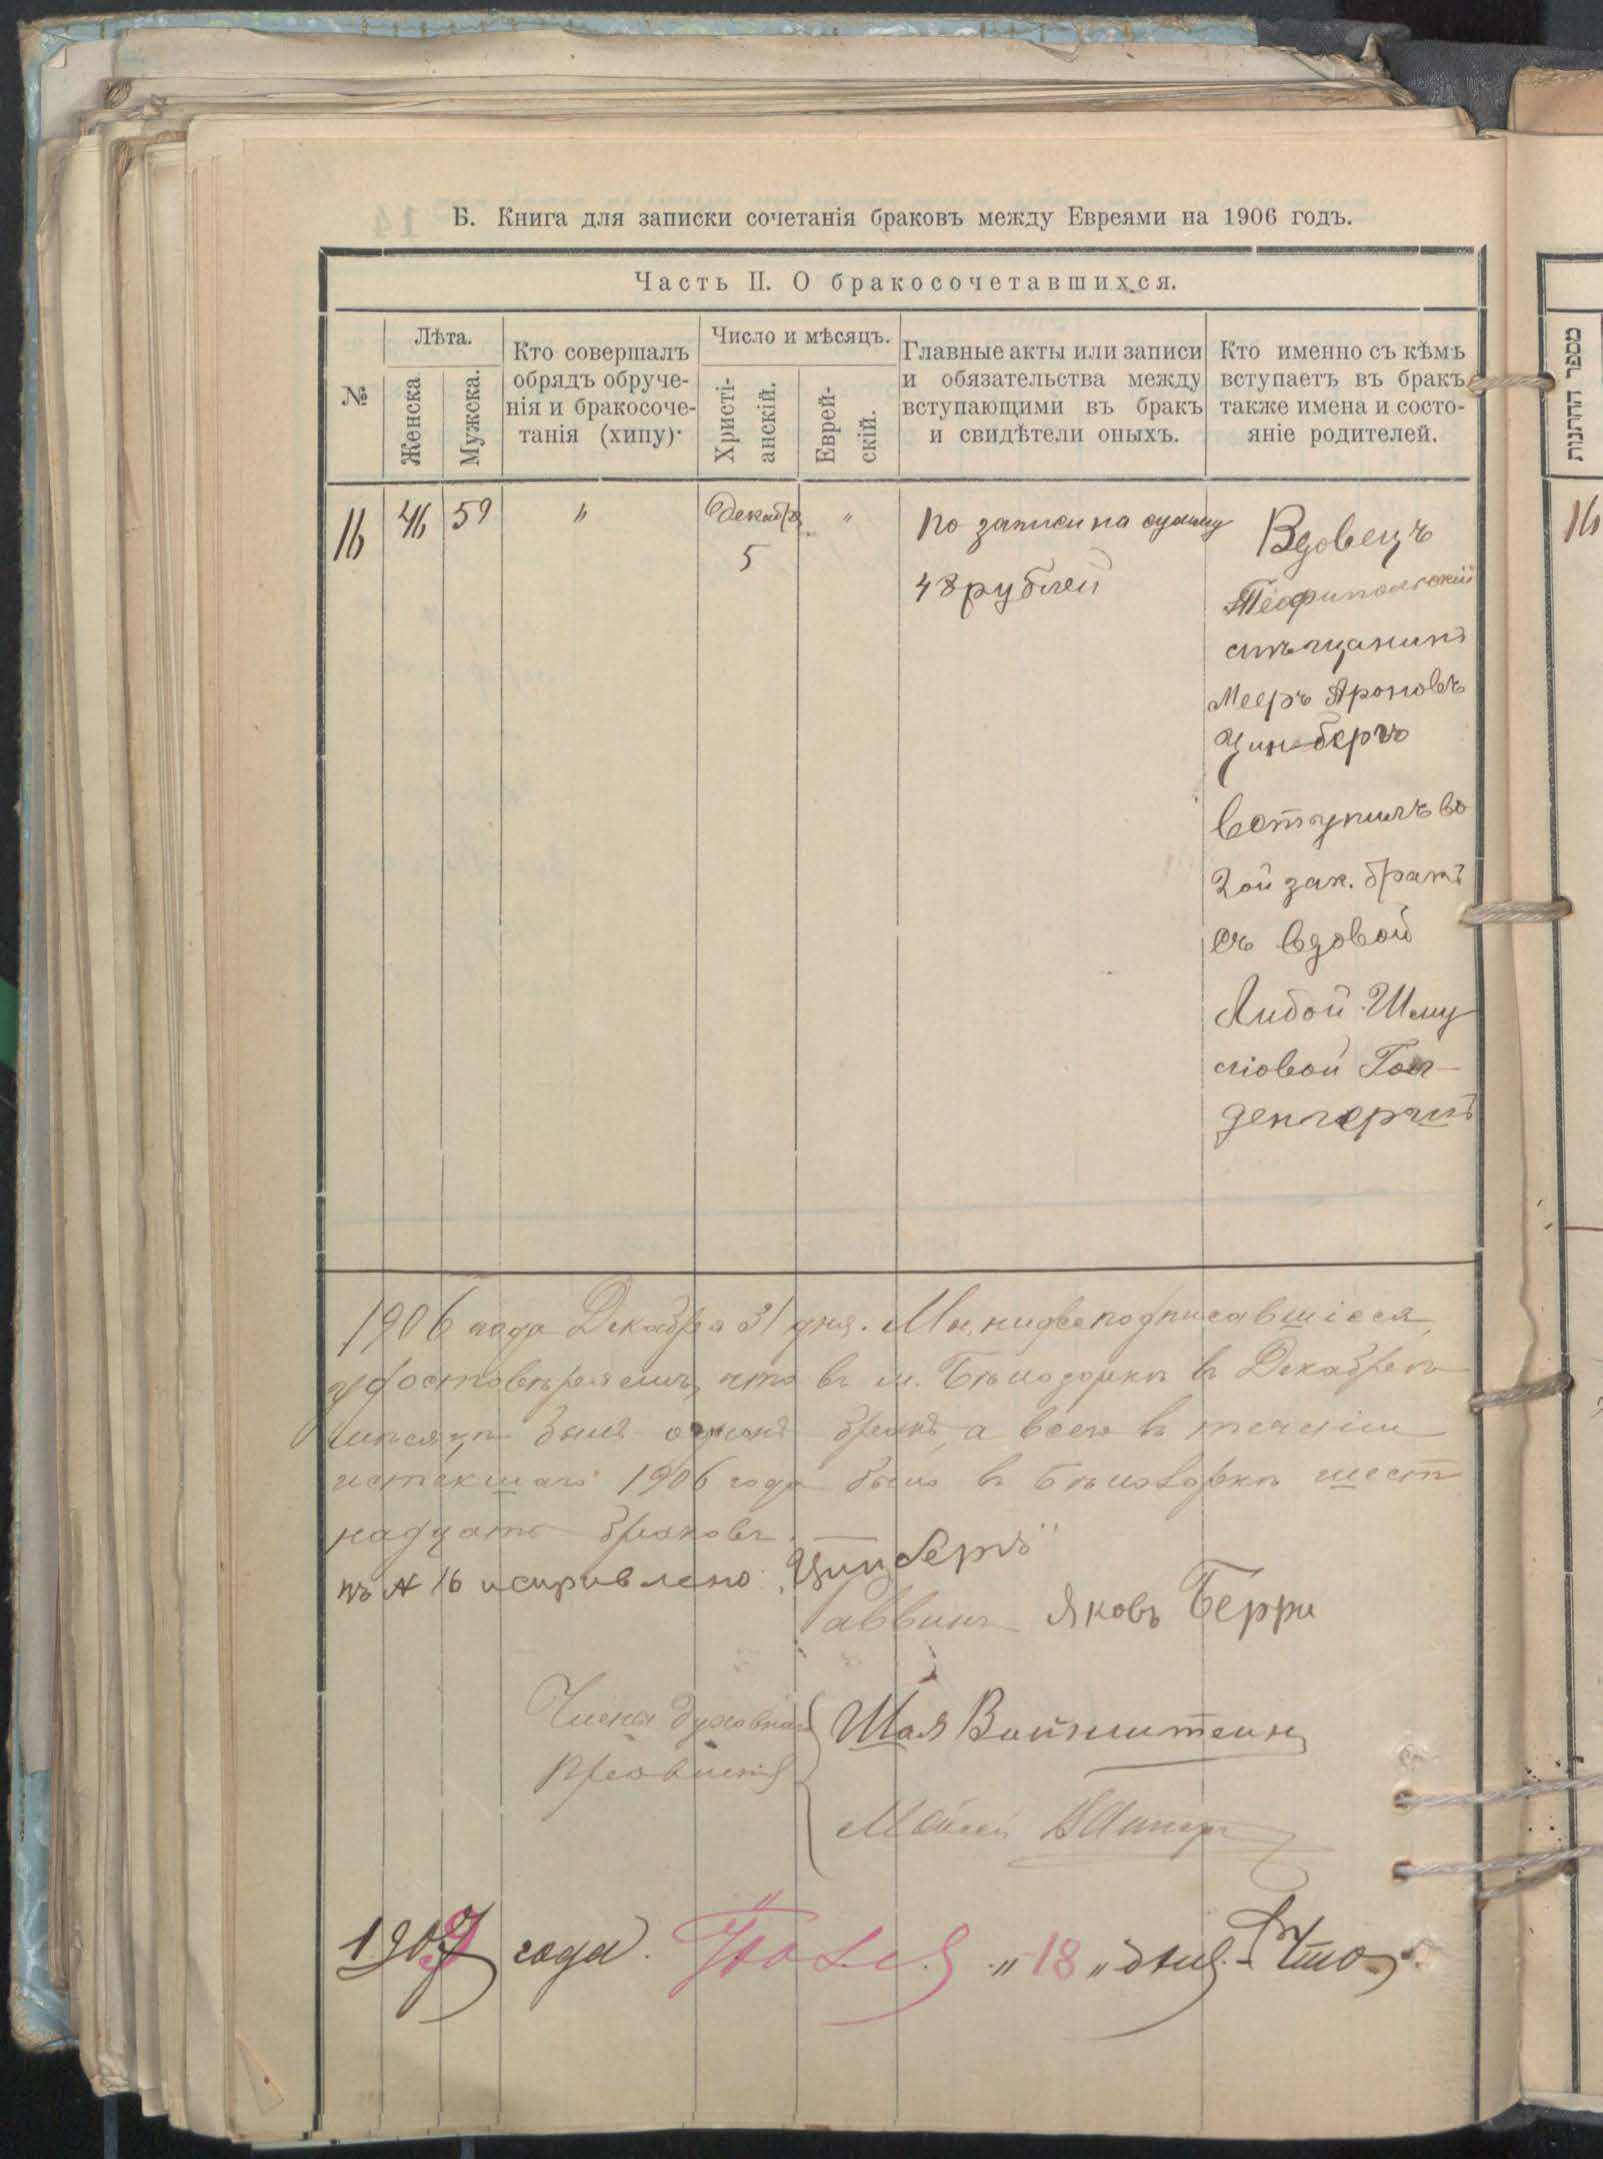 Б. Книга для записки сочетанія браковъ между Евреями на 1906 годъ.
Часть II. О бракосочетавшихся.
№
Лѣта.
Женска
Мужска.
Кто совершалъ
обрядъ обруче-
нія и бракосоче-
танія (хипу)
Число и мѣсяцъ.
Христі-
анскій.
Еврей-
скій.
Главные акты или записи
и обязательства между
вступающими въ бракъ
и свидѣтели оныхъ.
Кто именно съ кѣмъ
вступаетъ въ бракъ
также имена и состо-
яніе родителей.
16
46
59
"
Декабр
5
"
По записи на сумму
48 рублей
Вдовецъ
Теофипольскій
мѣщанинъ
Мееръ Ароновъ
Цинбергъ
вступилъ во
2ой зак. бракъ
съ вдовой
Либой Шму
ловой Гол-
1906 года Декабря 31 дня. Мы, нижеподписавшіеся,
удостовѣряемъ, что въ м. Бѣлозоркѣ въ Декабрѣ
мѣсяцѣ былъ одинъ бракъ, а всего въ теченіи
истекшаго 1906 года было въ Бѣлозоркѣ шест
надцать браковъ.
въ № 16 исправлено: „Цинбергъ"
Раввинъ Яковъ Берри
Члены духовнаго
правленія
Шая Вайнштейнъ
Мойсей
1907 года. "18" дня.
מספר החתונות
16